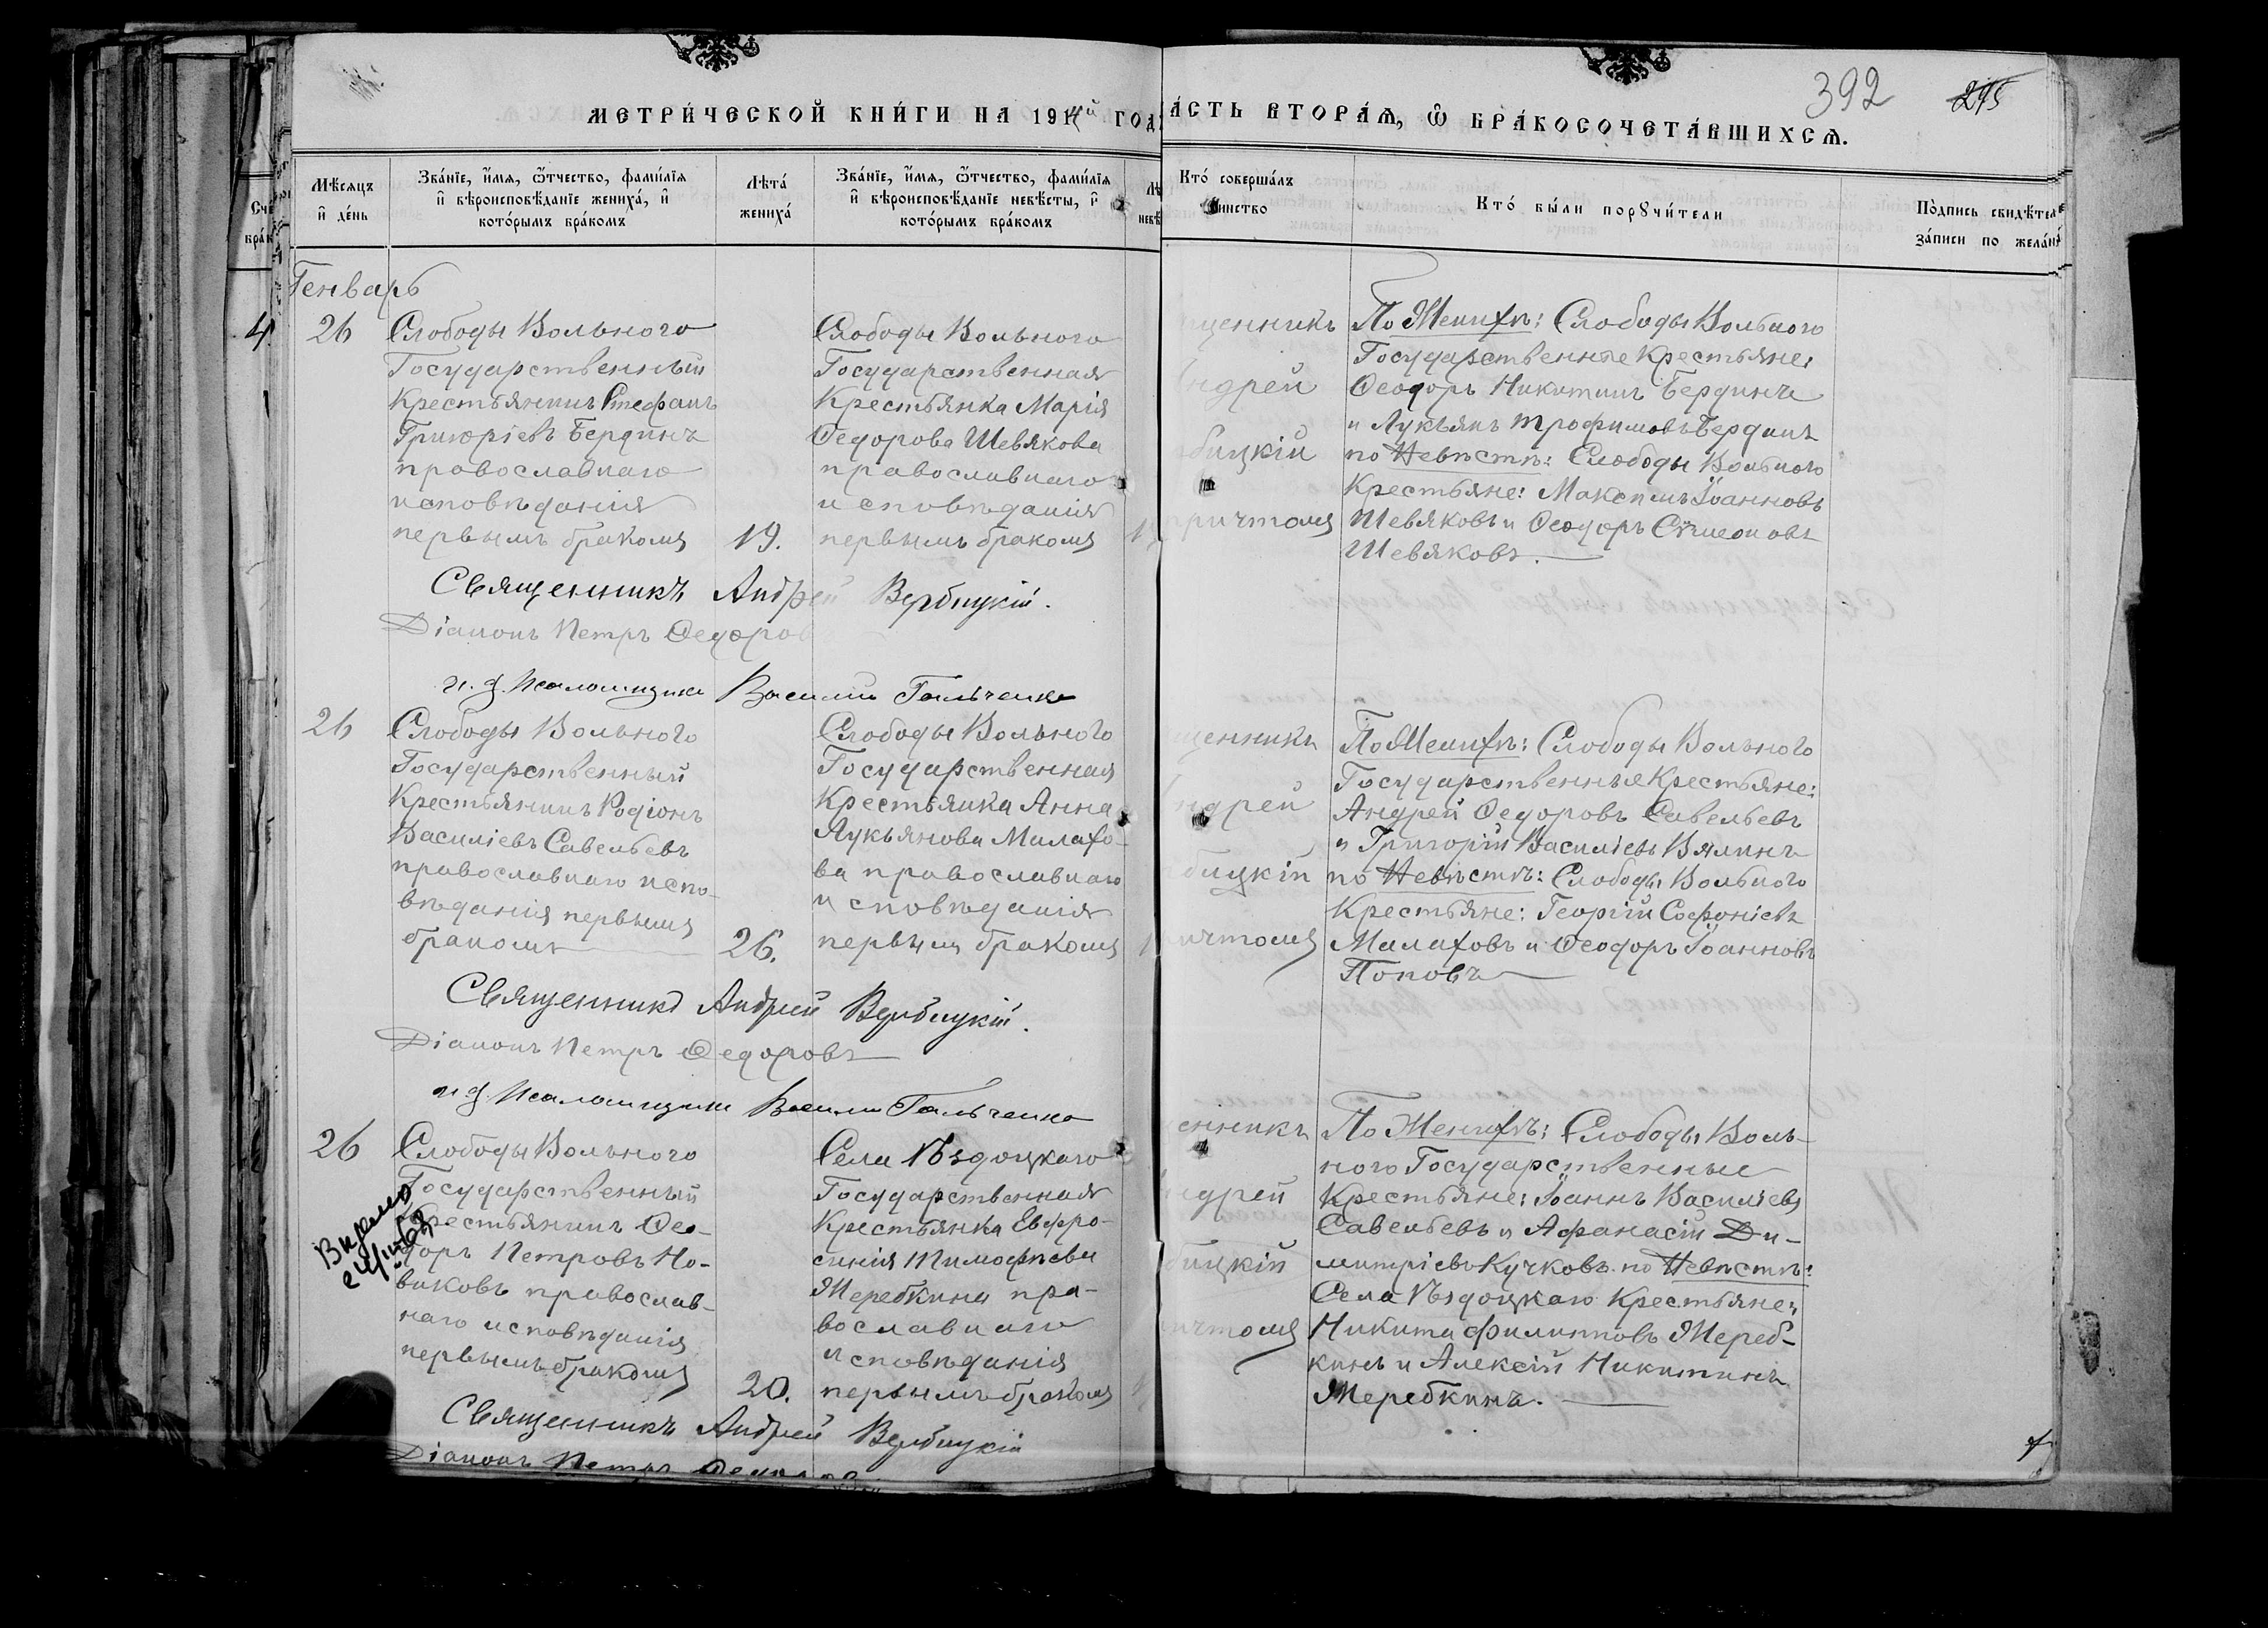 392
295
МЕТРИ́ЧЕСКОЙ КНИ́ГИ НА 1914й ГОД
А́СТЬ ВТОРА́Ѧ, Ѽ БРА́КОСОЧЕТА́ВШИХСѦ.
Счe
брак
Мѣсяцъ и҆ де́нь
Зва́нїе, и҆́мѧ, ѻ҆́тчество, фами́лїѧ и҆ вѣроисповѣ́данїе жениха́, и҆ кото́рымъ бра́комъ
Лѣта́ жениха́
Зва́нїе, и҆́мѧ, ѻ҆́тчество, фами́лїѧ и҆ вѣроисповѣ́данїе невѣ́сты, и҆ кото́рымъ бра́комъ
Кто́ соверша́лъ
инство
Кто́ бы́ли порꙋчи́тели
По́дпись свидѣтеле
за́писи по жела́н
Генварь
4
26
Слободы Вольного
Государственный
Крестьянинъ Стефанъ
Григоріевъ Бердинъ
православнаго
исповѣданія
первымъ бракомъ
19.
Слободы Вольного
Государственная
Крестьянка Марія
Ѳедорова Шевякова
православнаго
исповѣданія
первымъ бракомъ
щенникъ
ндрей
бицкій
причтомъ
По Женихѣ: Слободы Вольного
Государственные Крестьяне:
Ѳеодоръ Никитинъ Бердинъ
и Лукьянъ Трофимовъ Бердинъ
по Невѣстѣ: Слободы Вольного
Крестьяне: Максимъ Іоанновъ
Шевяковъ и Ѳеодоръ Сѵмеоновъ
Шевяковъ.
Священникъ Андрей Вербицкій.
Діаконъ Петръ Ѳедоров
и. д. Псаломщика Василий Гальченко
26
Слободы Вольного
Государственный
Крестьянинъ Родіонъ
Василіевъ Савельевъ
православнаго испо-
вѣданія первымъ
бракомъ
26.
Слободы Вольного
Государственная
Крестьянка Анна
Лукьянова Малахо-
ва православнаго
исповѣданія
первымъ бракомъ
щенникъ
ндрей
бицкій
ичтомъ
По Женихѣ: Слободы Вольного
Государственные Крестьяне:
Андрей Ѳедоровъ Савельевъ
и Григорій Василіевъ Вялинъ
по Невѣстѣ: Слободы Вольного
Крестьяне: Георгій Софоніевъ
Малаховъ и Ѳеодоръ Іоанновъ
Поповъ
Священникъ Андрей Вербицкій.
Діаконъ Петръ Ѳедоровъ
и д. Псаломщика Василий Гальченко
26
Слободы Вольного
Государственный
Крестьянинъ Ѳео-
доръ Петровъ Но-
виковъ православ-
наго исповѣданія
первымъ бракомъ
20.
Села Ѣздоцкаго
Государственная
Крестьянка Евфро-
синія Тимофѣева
Жеребкина пра-
вославнаго
исповѣданія
первымъ бракомъ
енникъ
ндрей
бицкій
ичтомъ
По Женихѣ: Слободы Воль-
ного Государственные
Крестьяне: Іоаннъ Василіевъ
Савельевъ и Афанасій Ди-
митріевъ Кучковъ. по Невѣстѣ:
Села Ѣздоцкаго Крестьяне:
Никита Филипповъ Жереб-
кинъ и Алексій Никитинъ
Жеребкинъ.
Священникъ Андрей Вербицкій
Діаконъ Петръ Ѳедоров